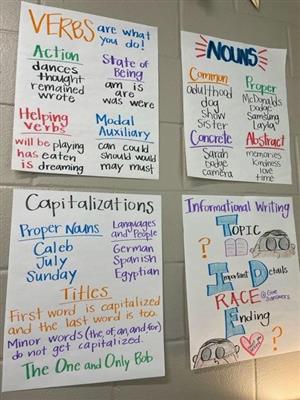 VERBS are what
you do!
Action
dances
thought
remained
wrote
State of
Being
am is
are
was were
Helping
verbs
will be playing
has eaten
is dreaming
Modal
Auxiliary
can could
should would
may must
NOUNS
Common
adulthood
dog
show
sister
Proper
McDonalds
Dodge
Samsung
Layla
Concrete
Sarah
Dodge
camera
Abstract
memories
kindness
love
time
Capitalizations
Proper Nouns
Caleb
July
Sunday
Languages
and People
German
Spanish
Egyptian
Titles
First word is capitalized
and the last word is too.
Minor words (the, of, an, and, for)
do not get capitalized.
The One and Only Bob
Informational Writing
TOPIC
?
Important Details
RACE
Ending
?